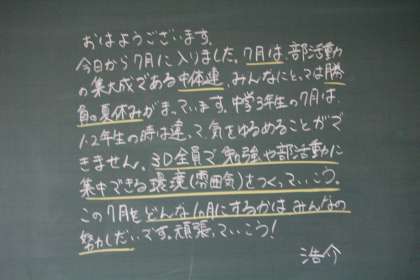 おはようございます。
今日から7月に入りました。7月は、部活動
の集大成である中体連、みんなにとっては勝
負の夏休みがまっています。中学3年生の7月は、
1・2年生の時は違って気をゆるめることがで
きません。3D全員で勉強や部活動に
集中できる環境(雰囲気)をつくっていこう。
この7月をどんな1ヵ月にするかは、みんなの
努力しだいです。頑張っていこう!
浩介